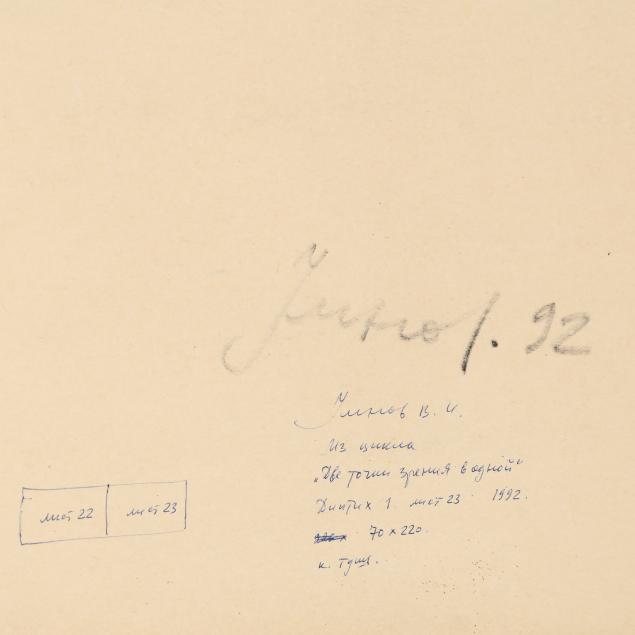 92
В. И.
Из цикла
„Две точки зрения в одной"
Диптих 1. лист 23 1992.
70 х 220.
к. тушь.
лист 22 лист 23